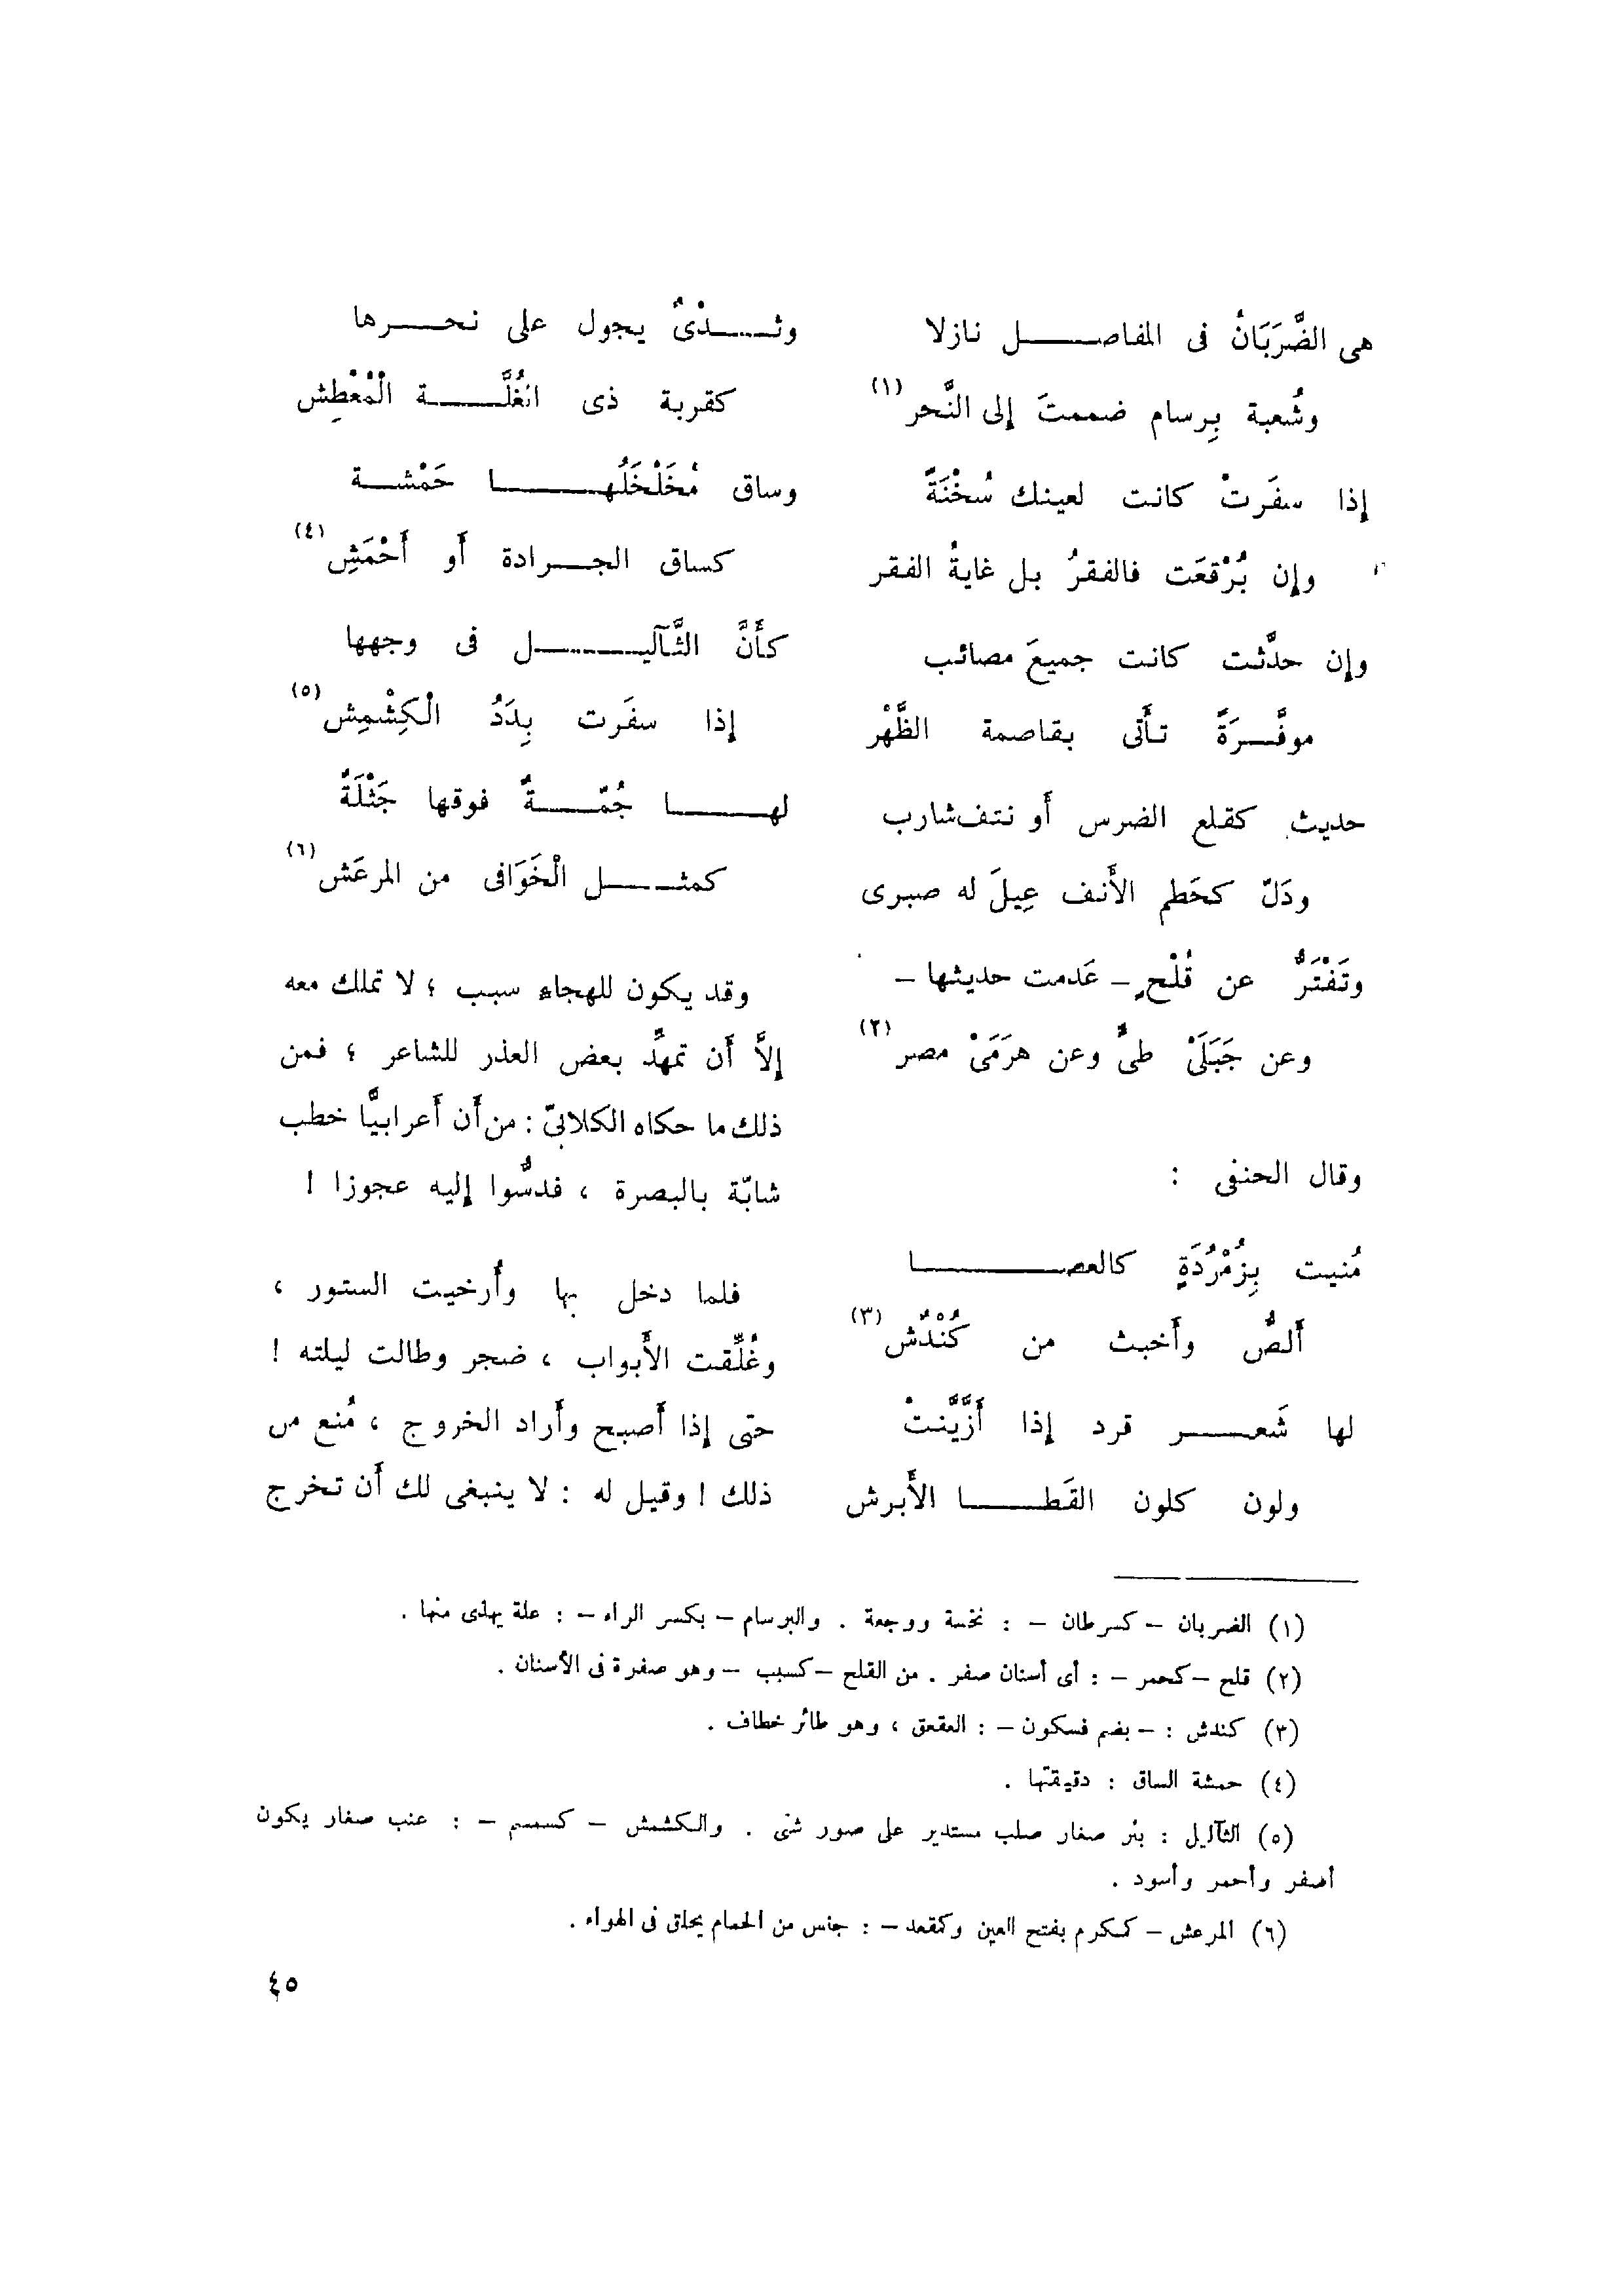 هى الضَّرَبَانُ فى المفاصل نازلا
وشُعبة بِرسام ضممتَ إلى النَّحر (١)
إذا سفَرتْ كانت لعينك سُخْنَةً
وإن بُرْقعَت فالفقرُ بل غايةُ الفقر
وإن حدَّثت كانت جميعَ مصائب
موفَّرَةً تأَتى بقاصمة الظَّهْر
حديث كقلع الضرس أَو نتف شارب
ودَلّ كحَطم الأَنف عِيلَ له صبرى
وتَفْتَرُّ عن قُلْحٍ – عَدمت حديثها –
وعن جَبَلَىْ طىٍّ وعن هرَمَىْ مصر (٢)
وقال الحنفى :
مُنيت بِزُمْرُدَةٍ كالعصا
أَلصُّ وأَخبث من كُنْدُش (٣)
لها شَعر قرد إذا أزَّيَّنتْ
ولون كلون القَطا الأَبرش
وثدْىٌ يجول على نحرها
كقربة ذى الغُلَّة الْمُعْطِش
وساق مُخَلْخَلُها حَمْشة
كساق الجرادة أَو أَحْمَشِ (٤)
كأَنَّ الثَّآليل فى وجهها
إذا سفَرت بِدَدُ الْكِشْمِش (٥)
لها جُمّةٌ فوقها جَثْلَةٌ
كمثل الْخَوَافى من المرعَش (٦)
وقد يكون للهجاء سبب ؛ لا تملك معه
إلاَّ أَن تمهِّد بعض العذر للشاعر ؛ فمن
ذلك ما حكاه الكلابىّ : من أَن أَعرابيًّا خطب
شابّة بالبصرة ، فدسُّوا إليه عجوزا !
فلما دخل بها وأُرخيت الستور ،
وغُلِّقت الأَبواب ، ضجر وطالت ليلته !
حتى إذا أَصبح وأَراد الخروج ، مُنع من
ذلك ! وقيل له : لا ينبغى لك أَن تخرج
(١) الضربان – كسرطان – : نخسة ووجعة . والبرسام – بكسر الراء – : علة يهذى منها .
(٢) قلح – كحمر – : أى أسنان صفر . من القلح – كسبب – وهو صفرة فى الأسنان .
(٣) كندش : – بضم فسكون – : العقعق ، وهو طائر خطاف .
(٤) حمشة الساق : دقيقتها .
(٥) الثآليل : بثر صغار صلب مستدير على صور شتى . والكشمش – كسمسم – : عنب صغار يكون
أصفر وأحمر وأسود .
(٦) المرعش – كمكرم بفتح العين وكمقعد – : جنس من الحمام يحلق فى الهواء .
٤٥